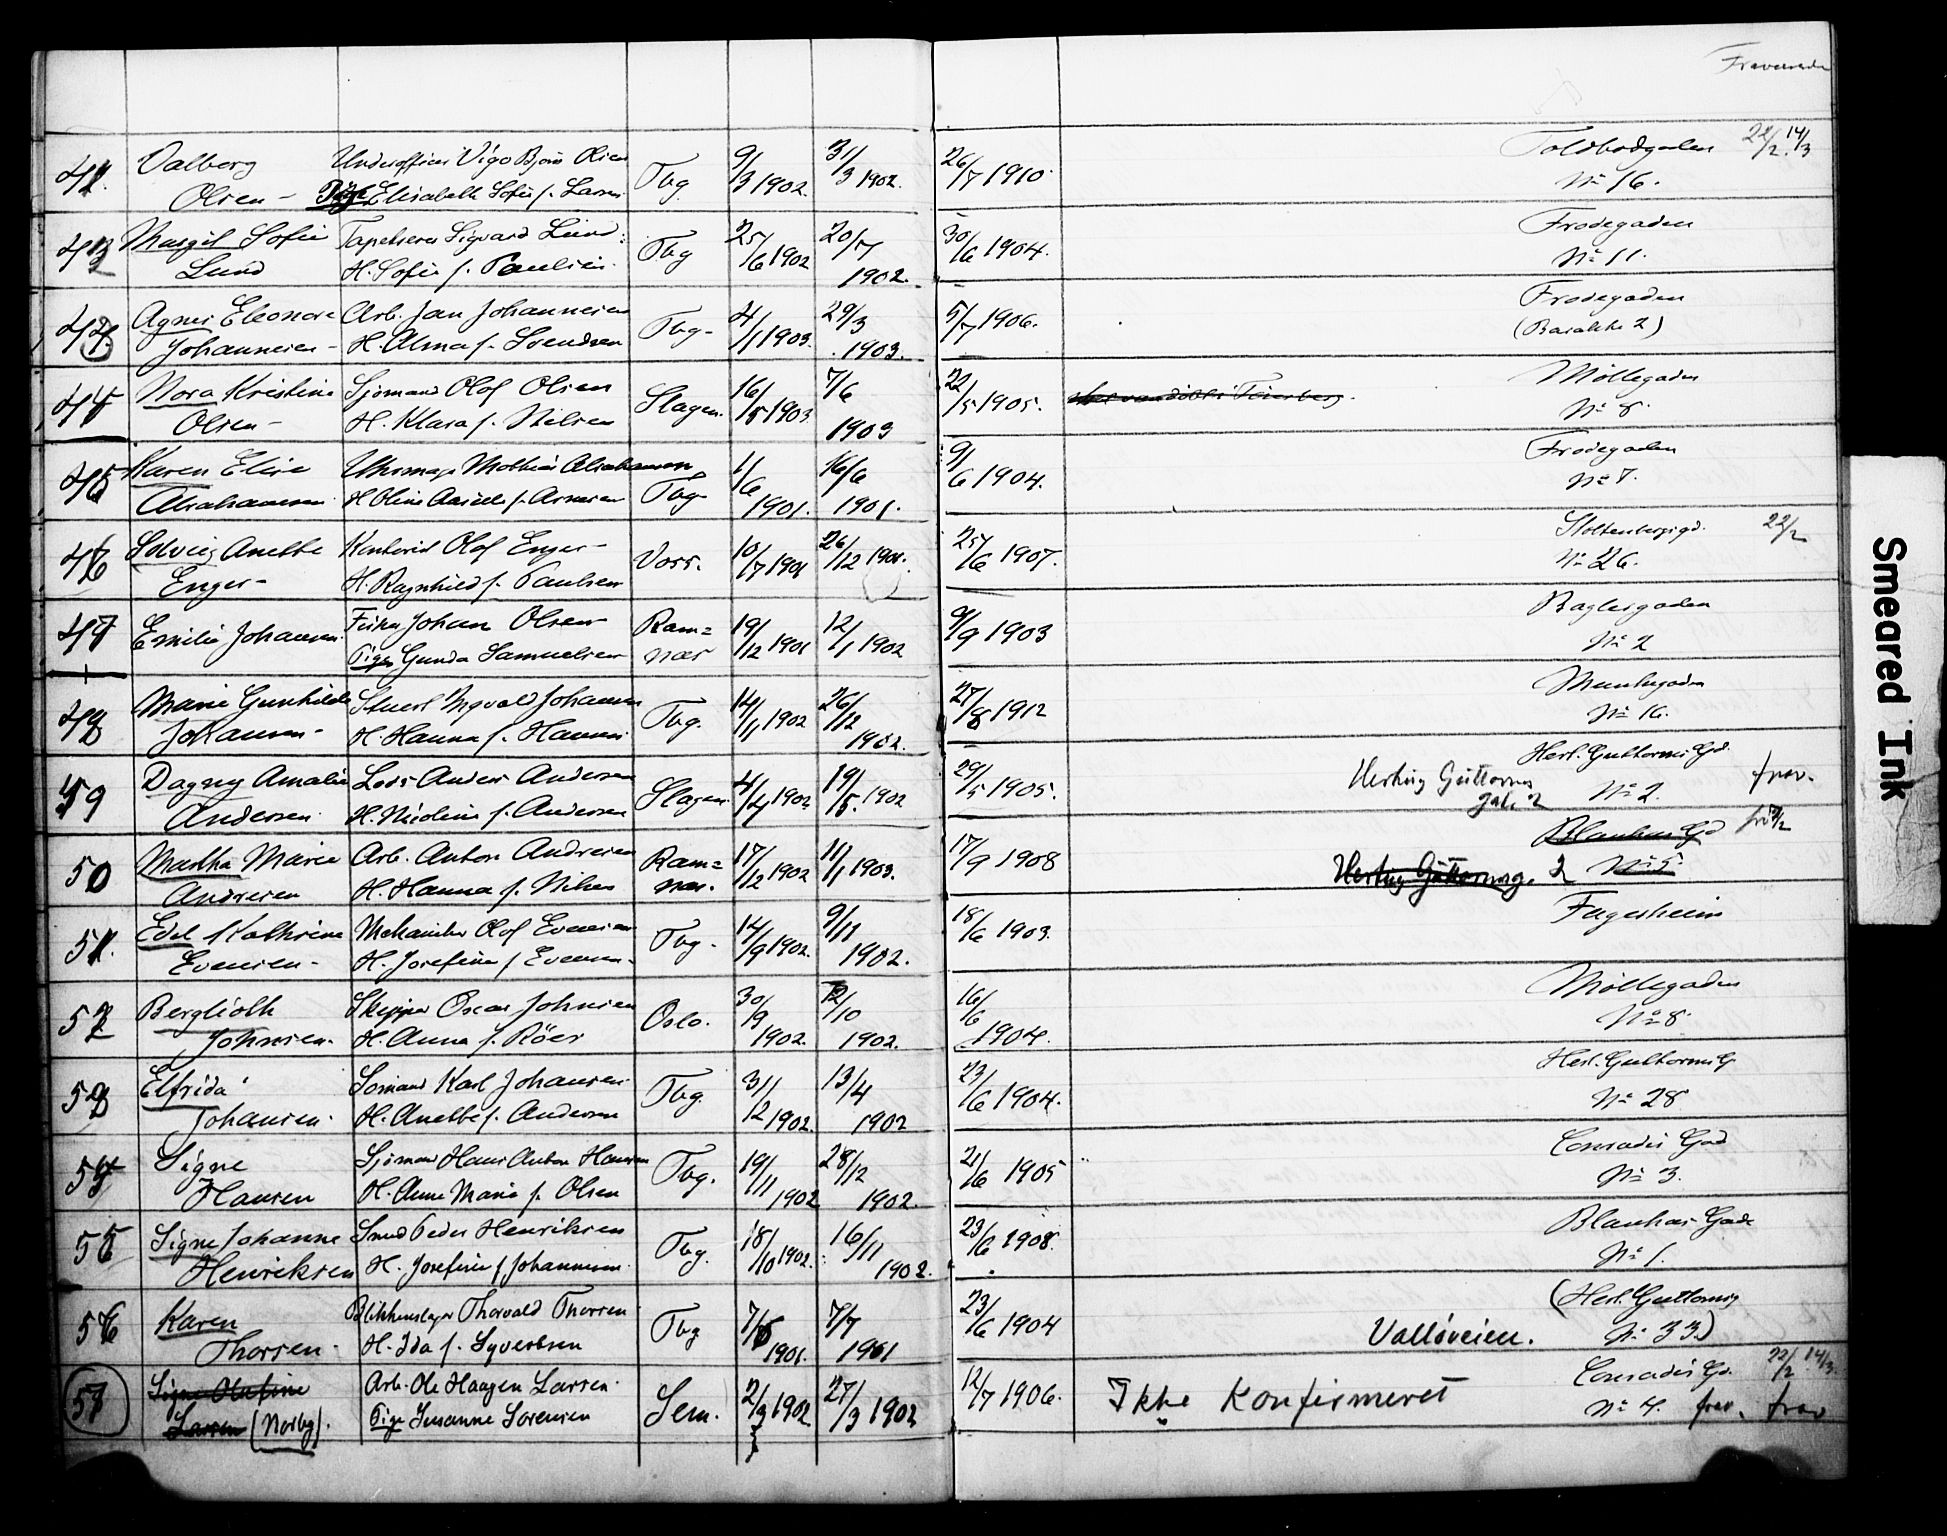 Fraværende
41. Valborg Underofficer Vigo Bjarne Olsen Tbg 9/3 1902 31/3 1902. 26/7 1910. Toldbodgaden 22/2. 14/3
Olsen - Pige Elisabeth Sofie f. Larsen No 16.
42 Margit Sofie Tapetserer Sigvard Lund Tbg 25/6 1902 20/7 1902. 30/6 1904. Frodegaden
Lund H. Sofie f. Paulsen No 11.
43 Agnes Eleonore Arb. Jan Johannesen Tbg - 4/1 1903. 29/3 1903. 5/7 1906. Frodegaden
Johannesen - H. Alma f. Svendsen (Barakke 2)
44 Nora Kristine Sjømand Olof Olsen Slagen. 16/5 1903 7/6 1903 22/5 1905. Møllegaden
Olsen - H. Klara f. Nilsen No 8.
45 Karen Elise Uhrmager Mathias Abrahamsen Tbg 1/6 1901. 16/6 1901. 9/6 1904. Frodegaden
Abrahamsen H f. Arnesen No 7.
46 Solveig Anette Kontorist Olof Enger - Vors. 10/7 1901 26/12 1901. 25/6 1907. Stoltenbergsgd. 22/2
Enger - H. Ragnhild f. Paulsen No 26.
47 Emilie Johansen Johan Olsen Ram= 19/12 1901 12/1 1902 9/9 1903 Baglergaden
Pige Gunda Samuelsen næs No 2
48 Marie Gunhilde Stuert Ingvald Johansen Tbg. 14/1 1902 26/12 1902. 27/8 1912 Munkegaden
Johansen - H. Hanna f. Hansen No 16.
49 Dagny Amalie Lods Anders Andersen Slagen. 4/4 1902 19/5. 1902 29/5 1905. Hertug Guttorms gat. 2 Hert. Guttorms Gd. frav.
Andersen H. Nicoline f. Andersen No 2.
50 Martha Marie Arb. Anton Andresen Ram= 17/12 1902 11/1 1903. 17/9 1908 Blauhus Gd
Andresen H. Hanna f. Nilsen næs. Hertug Guttormsg. 2 No 5
51. Edel Kathrine Mekaniker Olof Evensen Tbg - 14/9 1902. 9/11 1902. 18/6 1903. Fagerheim
Evensen - H. Josefine f Evensen
52 Berglioth Skipper Oscar Johnsen Oslo. 30/9 1902. 12/10 1902. 16/6 1904. Møllegaden
Johnsen. H. Anna f. Röer No 8.
53 Elfrida Sømand Karl Johansen Tbg. 31/12 1902. 13/4 1902 23/6 1904. Hert. Guttorms G
Johansen. H. Anette f. Andersen No 28
54 Signe Sjömand Hans Anton Hansen Tbg. 19/11 1902 28/12 1902. 21/6 1905 Conradis Gad
Hansen H. Anne Marie f. Olsen No 3.
55 Signe Johanne Smed Peder Henriksen Tbg. 18/10 1902. 16/11 1902. 23/6 1908. Blauhus Gade
Henriksen H. Josefine f Johannesen No 1.
56 Karen Blikkenslager Thorvald Thorsen Tbg 7/5 1901. 7/7 1901 23/6 1904 Valløveien. (Hert. Guttormsg
Thorsen - H. Ida f. Syvertsen No 33.)
57 Signe Olufine Arb. Ole Haagen Larsen Sem. 2/3 1902 27/3 1902 12/7 1906. Ikke Konfirmeret Conradis Gd. 22/2 14/3.
Larsen (Norby). Pige Susanne Sørensen No 4. frav. frav
Smeared Ink